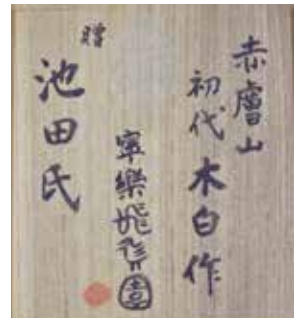 赤膚山
初代 木白作
寧樂
贈
池田氏